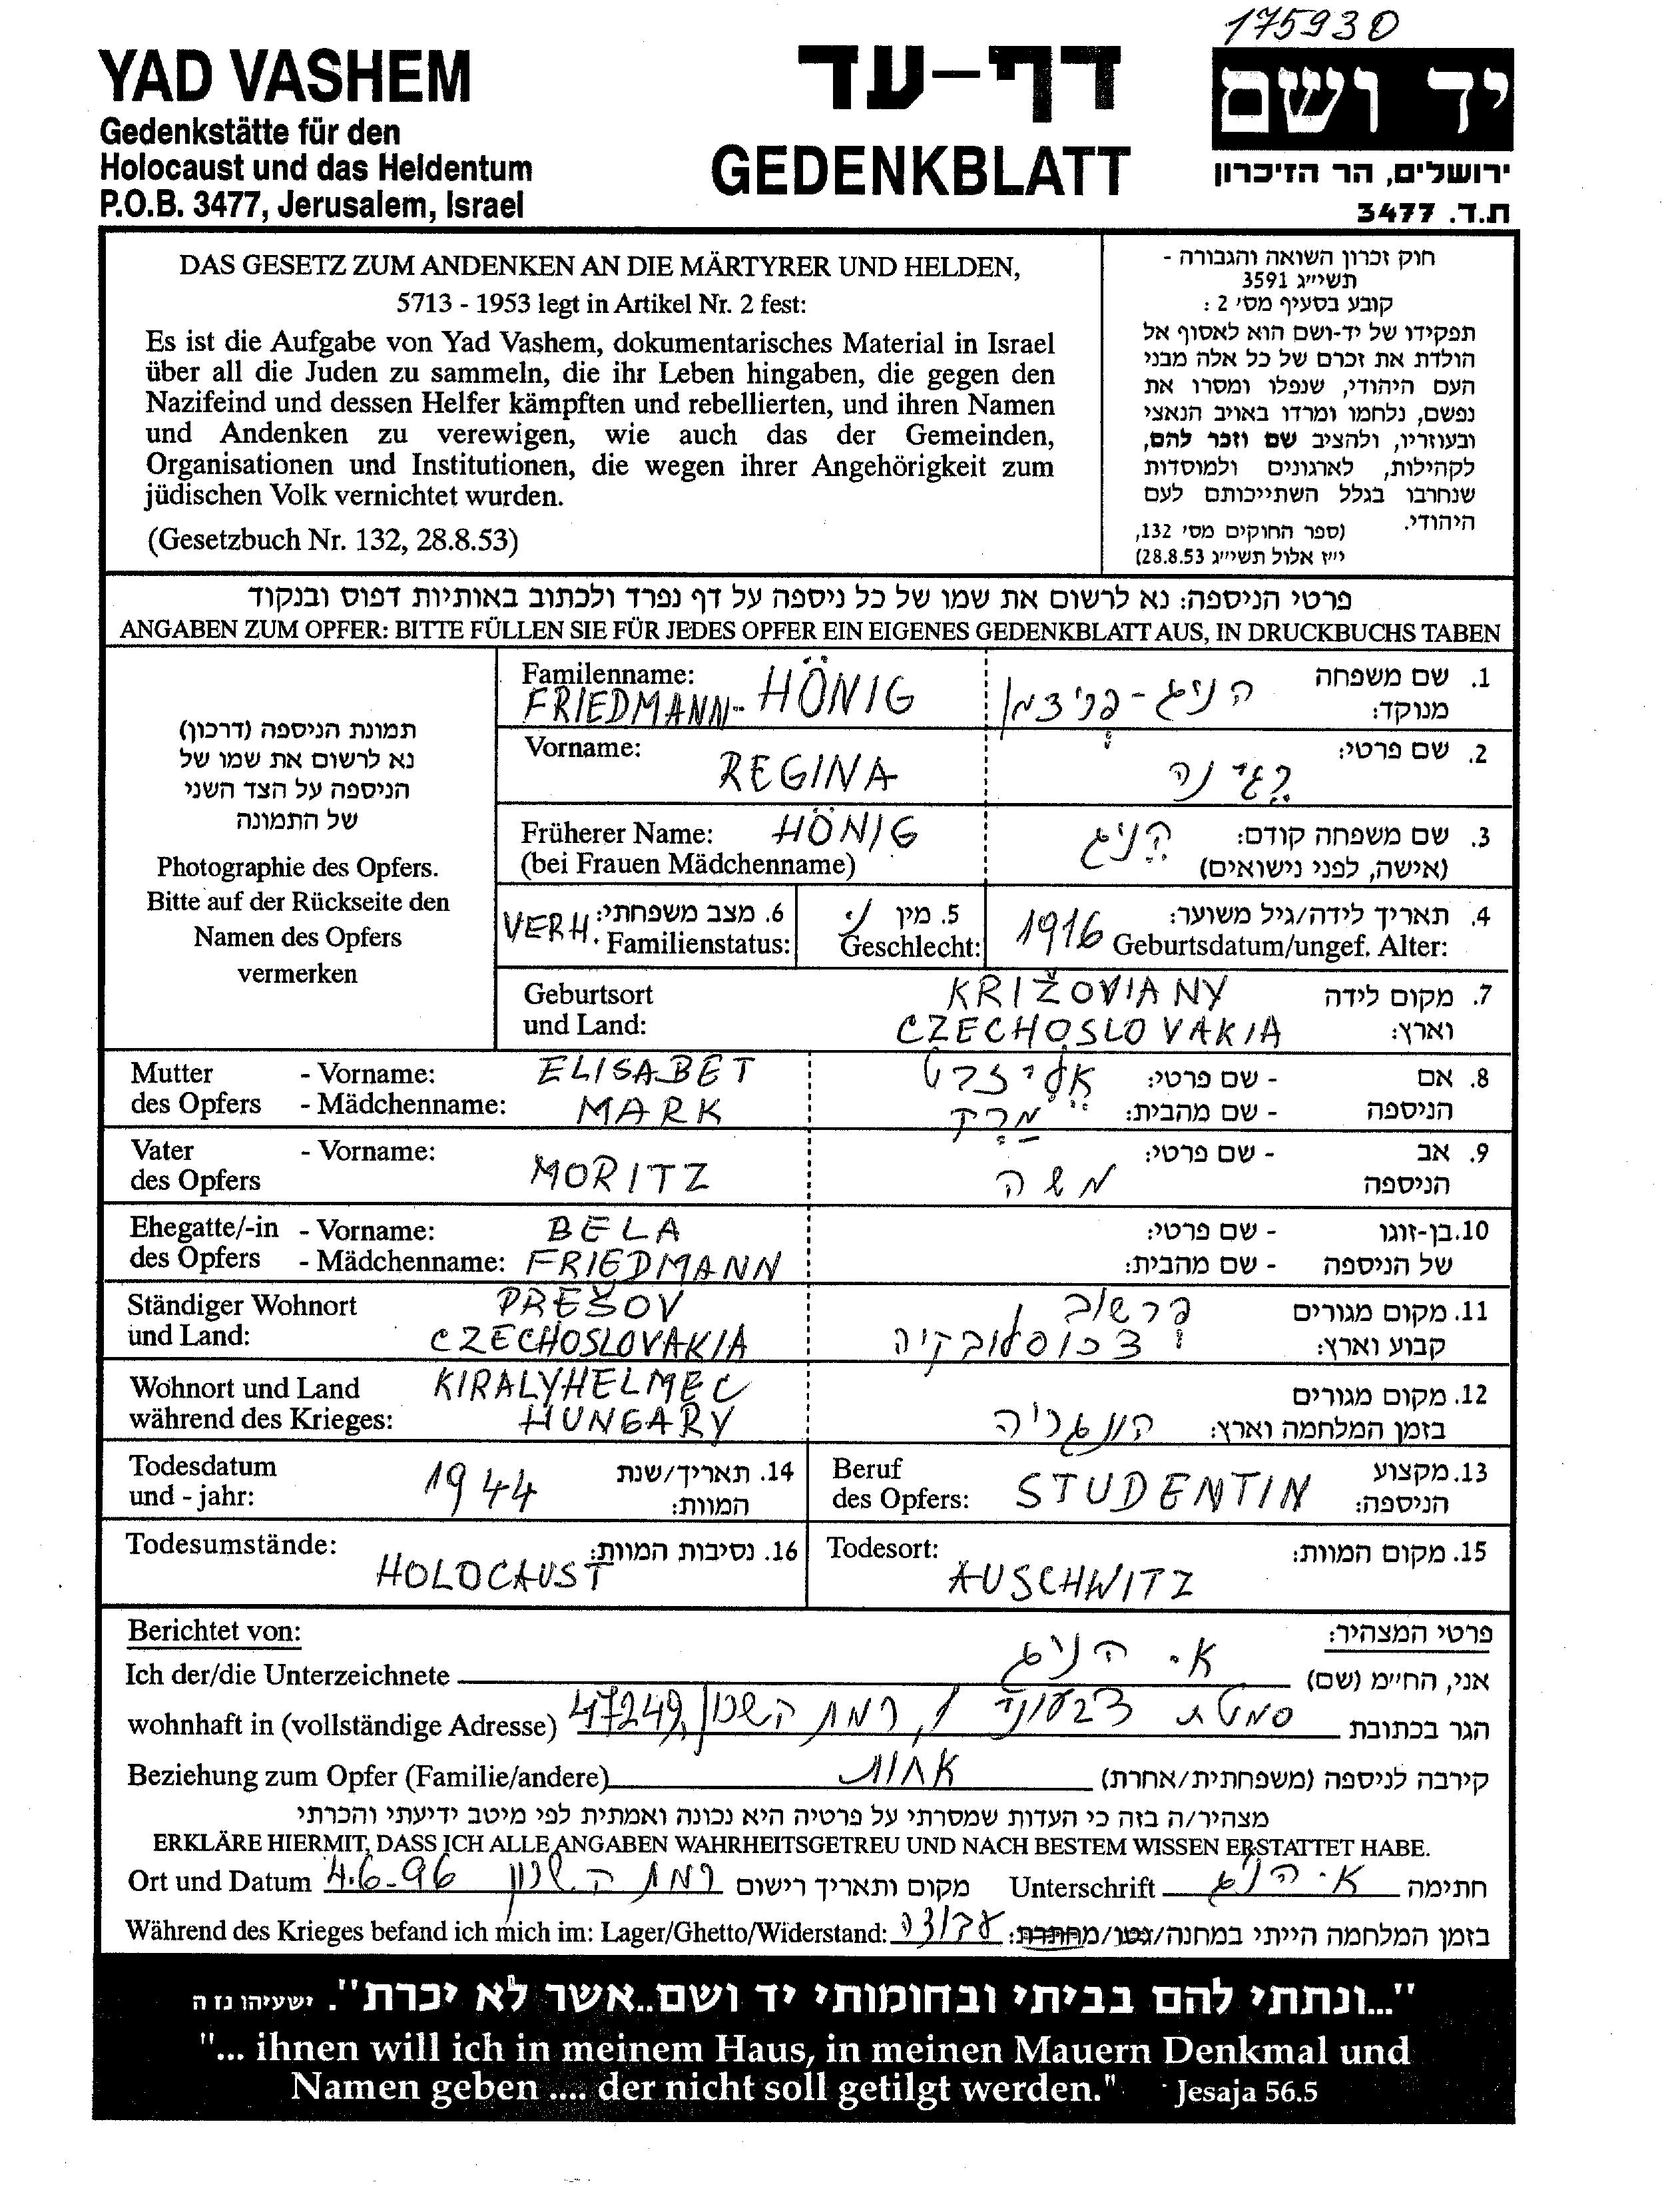 175930
YAD VASHEM
Gedenkstätte für den
Holocaust und das Heldentum
P.O.B. 3477, Jerusalem, Israel
דף-עד
GEDENKBLATT
יד ושם
ירושלים, הר הזיכרון
ת.ד. 3477
DAS GESETZ ZUM ANDENKEN AN DIE MÄRTYRER UND HELDEN,
5713 - 1953 legt in Artikel Nr. 2 fest:
Es ist die Aufgabe von Yad Vashem, dokumentarisches Material in Israel
über all die Juden zu sammeln, die ihr Leben hingaben, die gegen den
Nazifeind und dessen Helfer kämpften und rebellierten, und ihren Namen
und Andenken zu verewigen, wie auch das der Gemeinden,
Organisationen und Institutionen, die wegen ihrer Angehörigkeit zum
jüdischen Volk vernichtet wurden.
(Gesetzbuch Nr. 132, 28.8.53)
חוק זכרון השואה והגבורה -
תשי״ג 3591
קובע בסעיף מס׳ 2 :
תפקידו של יד-ושם הוא לאסוף אל
הולדת את זכרם של כל אלה מבני
העם היהודי, שנפלו ומסרו את
נפשם, נלחמו ומרדו באויב הנאצי
ובעוזריו, ולהציב שם וזכר להם,
לקהילות, לארגונים ולמוסדות
שנחרבו בגלל השתייכותם לעם
היהודי.
(ספר החוקים מס׳ 132,
י״ז אלול תשי״ג 28.8.53)
פרטי הניספה: נא לרשום את שמו של כל ניספה על דף נפרד ולכתוב באותיות דפוס ובנקוד
ANGABEN ZUM OPFER: BITTE FÜLLEN SIE FÜR JEDES OPFER EIN EIGENES GEDENKBLATT AUS, IN DRUCKBUCHS TABEN
תמונת הניספה (דרכון)
נא לרשום את שמו של
הניספה על הצד השני
של התמונה
Photographie des Opfers.
Bitte auf der Rückseite den
Namen des Opfers
vermerken
Familenname: FRIEDMANN-HÖNIG
הניג-פרידמן
1. שם משפחה
מנוקד:
Vorname: REGINA
רגינה
2. שם פרטי:
Früherer Name: HÖNIG
(bei Frauen Mädchenname)
הניג
3. שם משפחה קודם:
(אישה, לפני נישואים)
VERH.
6. מצב משפחתי:
Familienstatus:
נ.
5. מין
Geschlecht:
1916
4. תאריך לידה/גיל משוער:
Geburtsdatum/ungef. Alter:
Geburtsort
und Land:
KRIŽOVIANY
CZECHOSLOVAKIA
7. מקום לידה
וארץ:
Mutter - Vorname: ELISABET
des Opfers - Mädchenname: MARK
אליזבט
מרק
8. אם - שם פרטי:
הניספה - שם מהבית:
Vater - Vorname:
des Opfers
MORITZ
משה
9. אב - שם פרטי:
הניספה
Ehegatte/-in - Vorname: BELA
des Opfers - Mädchenname: FRIEDMANN
10. בן-זוגו - שם פרטי:
של הניספה - שם מהבית:
Ständiger Wohnort PREŠOV
und Land: CZECHOSLOVAKIA
פרשוב,
צכוסלובקיה
11. מקום מגורים
קבוע וארץ:
Wohnort und Land KIRALYHELMEC
während des Krieges: HUNGARY
הונגריה
12. מקום מגורים
בזמן המלחמה וארץ:
Todesdatum
und - jahr:
1944
14. תאריך/שנת
המוות:
Beruf
des Opfers: STUDENTIN
13. מקצוע
הניספה:
Todesumstände: HOLOCAUST
16. נסיבות המוות:
Todesort: AUSCHWITZ
15. מקום המוות:
Berichtet von:
פרטי המצהיר:
Ich der/die Unterzeichnete א. הניג אני, החי״מ (שם)
wohnhaft in (vollständige Adresse) סמטת 1, רמת השרון 47249 הגר בכתובת
Beziehung zum Opfer (Familie/andere) אחות קירבה לניספה (משפחתית/אחרת)
מצהיר/ה בזה כי העדות שמסרתי על פרטיה היא נכונה ואמתית לפי מיטב ידיעתי והכרתי
ERKLÄRE HIERMIT, DASS ICH ALLE ANGABEN WAHRHEITSGETREU UND NACH BESTEM WISSEN ERSTATTET HABE.
Ort und Datum 4.6.96 רמת השרון מקום ותאריך רישום Unterschrift א. הניג חתימה
Während des Krieges befand ich mich im: Lager/Ghetto/Widerstand: בזמן המלחמה הייתי במחנה/גטו/מחתרת:
"...ונתתי להם בביתי ובחומותי יד ושם..אשר לא יכרת". ישעיהו נז ה
"... ihnen will ich in meinem Haus, in meinen Mauern Denkmal und
Namen geben .... der nicht soll getilgt werden." Jesaja 56.5